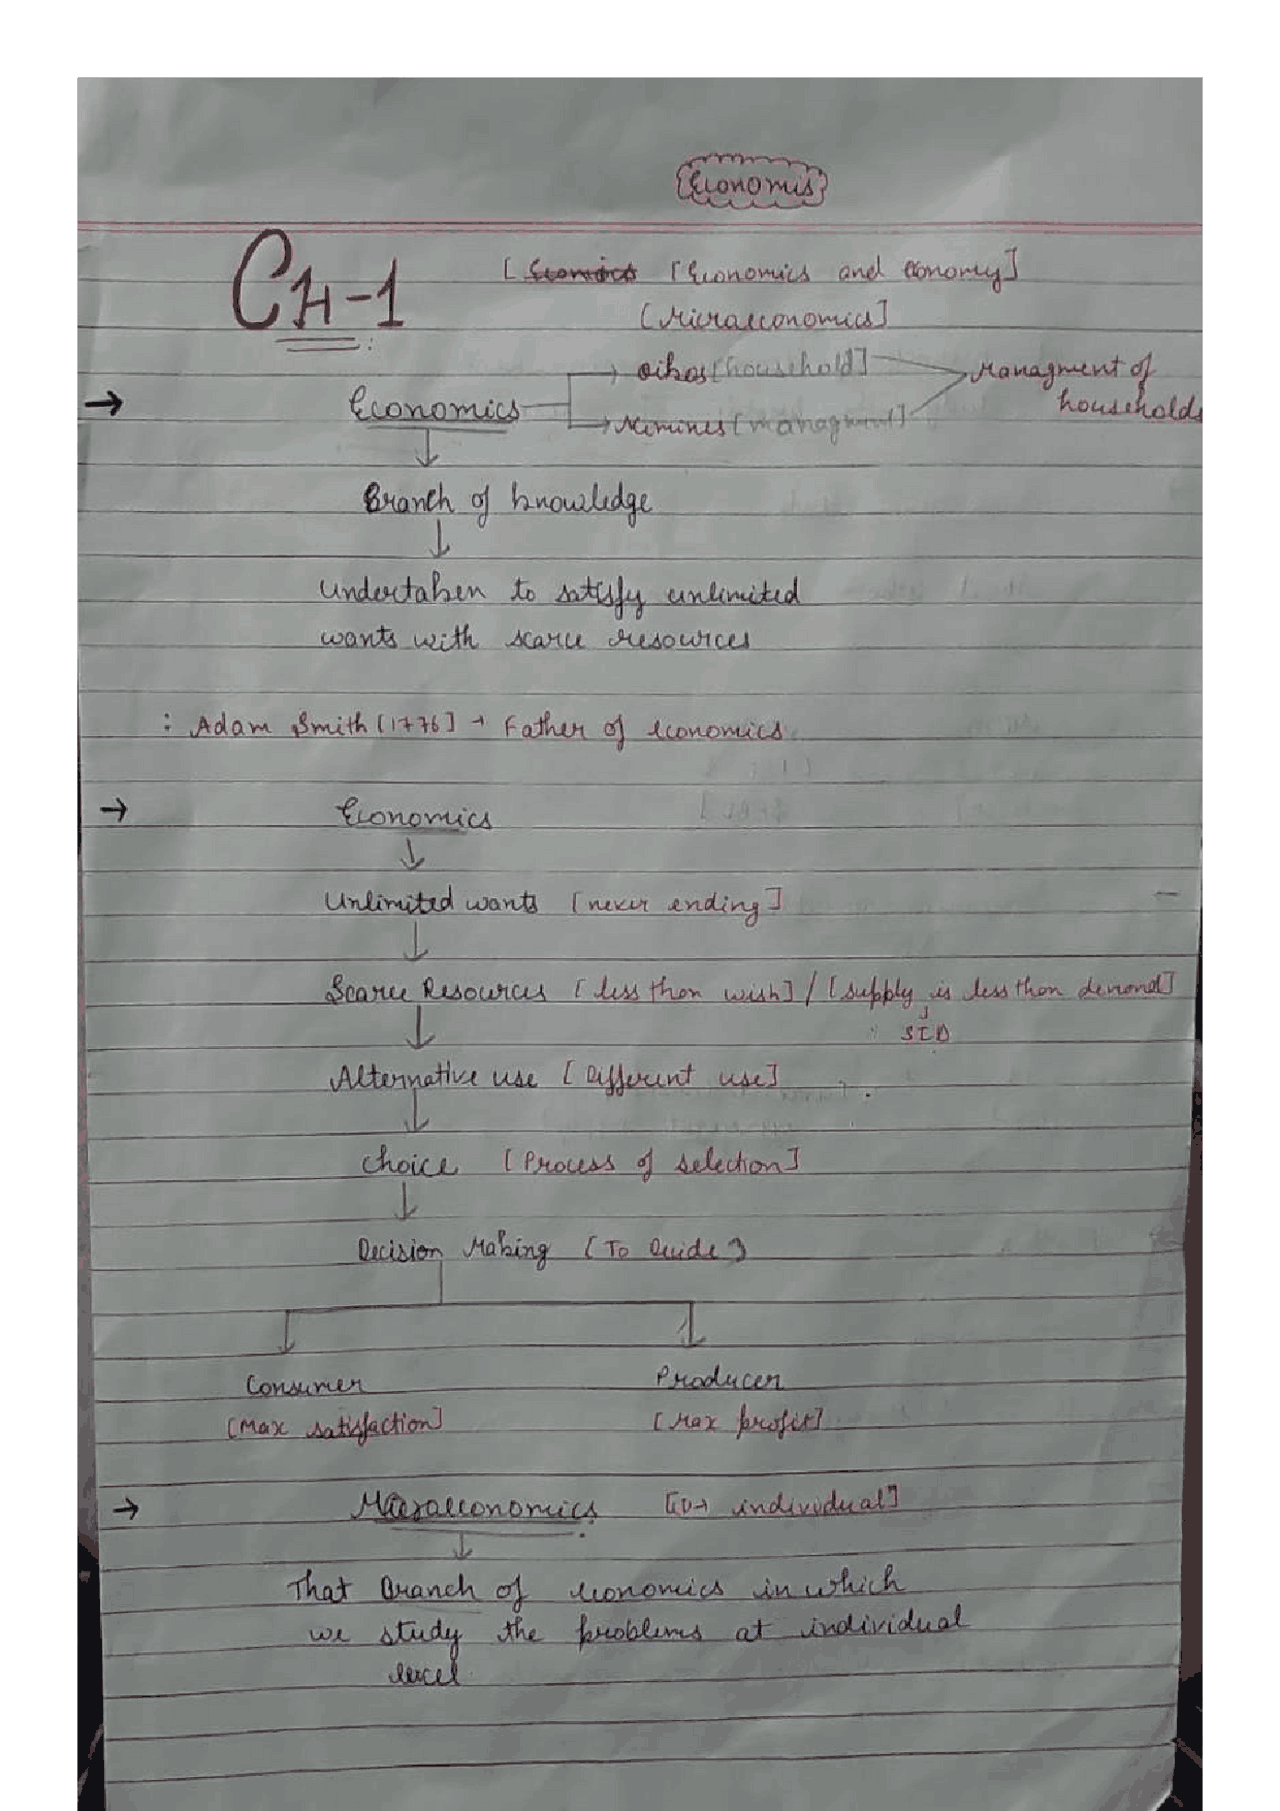 Economis
CH-1
[Economics and economy]
[Microeconomics]
→ oikos [household]
Managment of
households
→ Economics
→ Nemines [managment]
Branch of knowledge
Undertaken to satisfy unlimited
wants with scarce resources
: Adam Smith [1776] → Father of economics
→ Economics
Unlimited wants [never ending]
Scarce Resources [less than wish] / [supply is less than demand]
Alternative use [Different use]
choice [Process of selection]
Decision Making (To Decide)
Consumer Producer
[Max satisfaction] [Max profit]
→ Microeconomics [individual]
That Branch of economics in which
we study the problems at individual
level